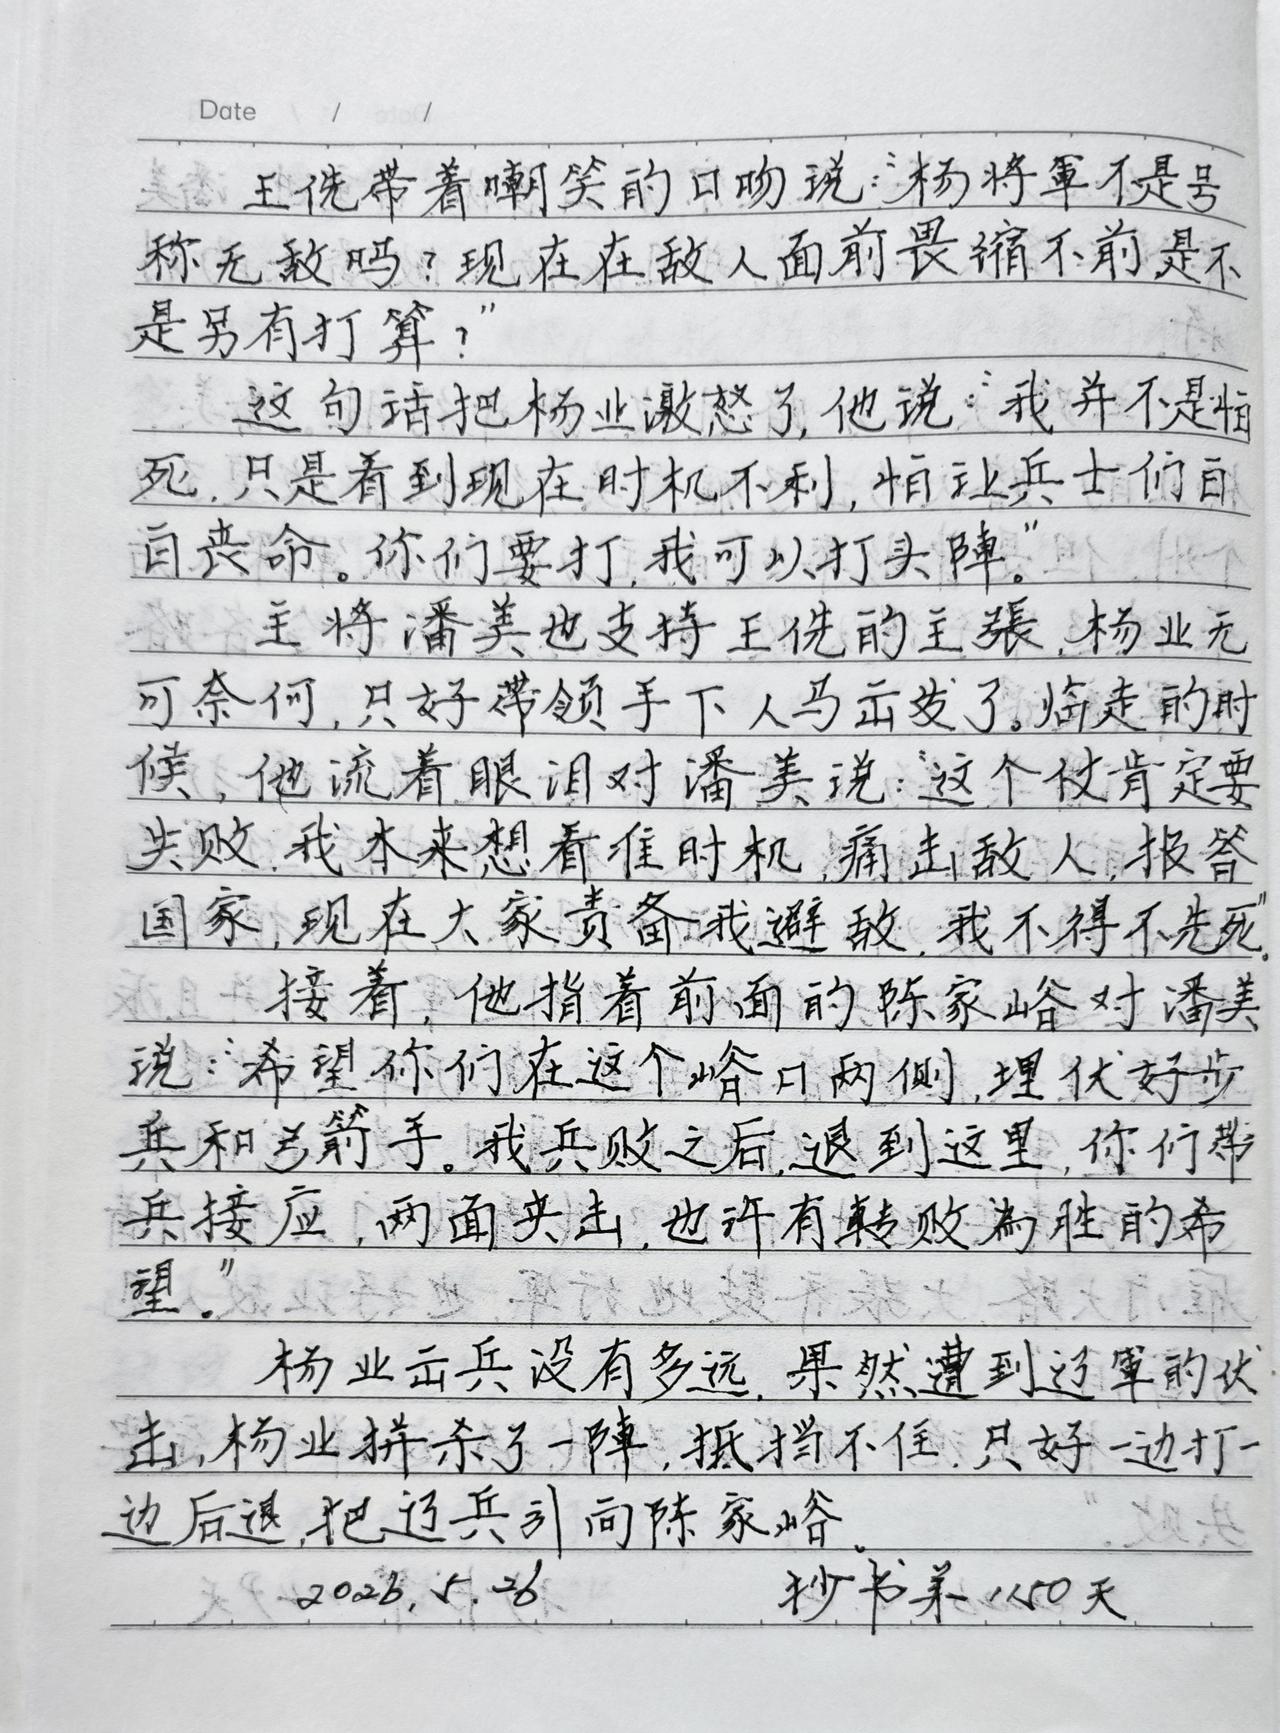 Date / /
王侁带着嘲笑的口吻说：“杨将軍不是号
称无敌吗？现在在敌人面前畏缩不前，是不
是另有打算？”
这句话把杨业激怒了，他说：“我并不是怕
死，只是看到现在时机不利，怕让兵士们白
白丧命。你们要打，我可以打头陣。”
主将潘美也支持王侁的主張，杨业无
可奈何，只好带领手下人马出发了。临走的时
候，他流着眼泪对潘美说：“这个仗肯定要
失败，我本来想看准时机，痛击敌人，报答
国家，现在大家责备我避敌，我不得不先死。”
接着，他指着前面的陈家峪对潘美
说：“希望你们在这个峪口两侧，埋伏好步
兵和弓箭手。我兵败之后，退到这里，你们带
兵接应，两面夹击，也许有転败為胜的希
望。”
杨业出兵没有多远，果然遭到辽軍的伏
击，杨业拼杀了一陣，抵挡不住，只好一边打一
边后退，把辽兵引向陈家峪。
2026.5.26 抄书第1150天